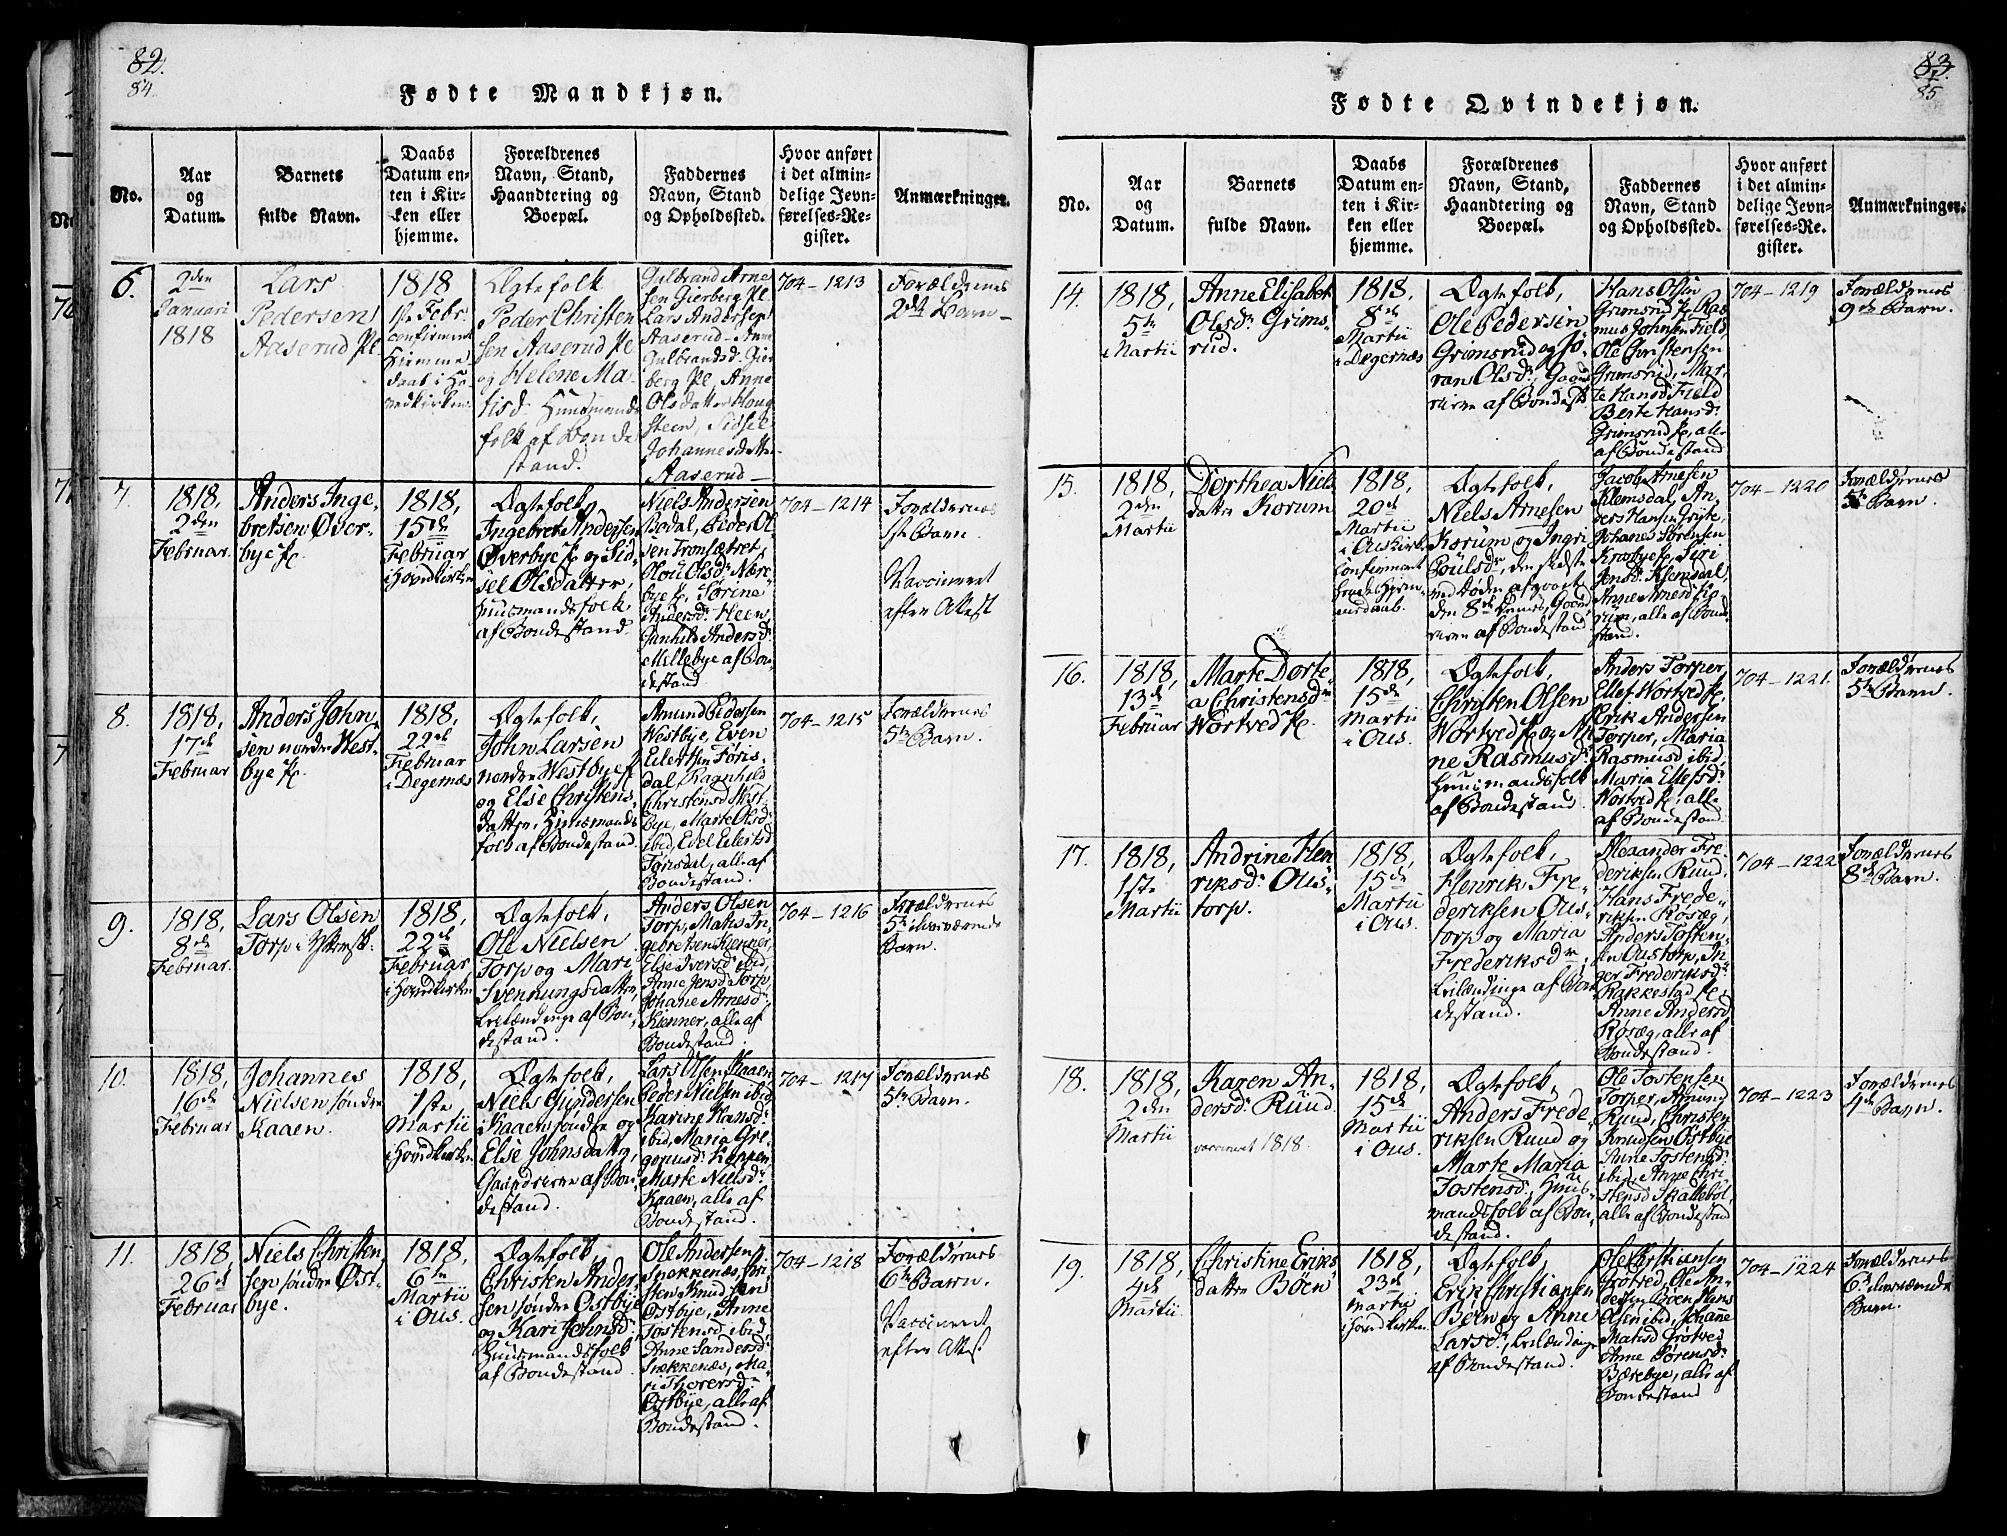 82.
84.
Fødte Mandkjøn.
No.
Aar
og
Datum.
Barnets
fulde Navn.
Daabs
Datum en-
ten i Kir-
ken eller
hjemme.
Forældrenes
Navn, Stand,
Haandtering og
Boepæl.
Faddernes
Navn, Stand
og Opholdssted.
Hvor anført
i det almin-
delige Jevn-
førelses-Re-
gister.
Anmærkninger.
6.
2den
Januari
1818
Lars
Pedersen
Aaserud Pl
1818
1ste Febr
confirmeret
Hjemme
daab i Ho-
vedkirken
Ægtefolk
Peder Christen
sen Aaserud Pl
og Helene Ma-
tisd. Huusmands
folk af Bonde
stand.
Gulbrand Arne
sen Gierberg Pl.
Lars Andersen
Aaserud - Anne
Gulbrandsd. Gier
berg Pl, Anne
Olsdatter Houg
steen, Sidsel
Johannesdatter
Aaserud
704-1213
Forældrenes
2det Barn
7.
1818,
2den
Februar.
Anders Inge-
bretsen Øver-
bye Pl.
1818,
15de
Februar
i Hovedkirken
Ægtefolk,
Ingebret Andersen
Øverbye Pl og Sid-
sel Olsdatter,
Huusmandsfolk
af Bondestand.
Niels Andersen
Bødal, Peder Ol-
sen Tronsætret,
Olou Olsdr. Nære-
bye Pl, Sørine
Andersdr. Heen,
Gunhild Andersdr.
Mellebye af Bon-
destand
704-1214
Forældrenes
1ste Barn.
Vaccineret
efter Attest
8.
1818,
17de
Februar
Anders John-
sen nordre West-
bye Pl.
1818,
22de
Februar
i Degernæs
Ægtefolk,
John Larsen
nordre Westbye Pl
og Else Christens-
datter, Huusmands-
folk af Bondestand.
Amund Pedersen
Westbye, Even
Eilertsen Føris-
dal, Ragnhild
Christensd West-
bye, Marte Olsdr.
ibid, Edel Eilertsd
Førisdal, alle af
Bondestand.
704-1215
Forældrenes
5te Barn.
9.
1818,
8de
Februar.
Lars Olsen
Torp i
1818,
22de
Februar
i Hovedkirken
Ægtefolk,
Ole Nielsen
Torp og Mari
Svennungsdatter,
Leilændinge af Bon-
destand.
Anders Olsen
Torp, Matis In-
gebretsen Kienner,
Else Iversd ibid,
Anne Jensd Torp,
Johane Arnesdr.
Kienner, alle af
Bondestand.
704-1216
Forældrenes
5te
Barn.
10.
1818,
16de
Februar
Johannes
Nielsen søndre
Kaaen.
1818,
1ste
Martii
i Hovedkirken
Ægtefolk,
Niels Gundersen
Kaaen søndre og
Else Johnsdatter,
Gaardbrugere af Bon-
destand.
Lars Olsen Kaaen
Peder Nielsen ibid
Karine Hansdr.
ibid, Maria Gre-
goriusdr. Koppen,
Marte Nielsdr.
Kaaen, alle af
Bondestand.
704-1217
Forældrenes
5te Barn.
11.
1818,
26de
Februar
Niels Christen-
sen søndre Øst-
bye.
1818,
6te
Martii
i Ous.
Ægtefolk,
Christen Ander-
sen søndre Østbye
og Kari Johnsdr.
Huusmandsfolk
af Bondestand.
Ole Andersen
Snekkenæs, Chri-
sten Knudsen
Østbye, Anne
Tostensd ibid,
Anne Sandersdr.
Snekkenæs, Ma-
ri Thoresdr.
Østbye, alle af
Bondestand.
704-1218
Forældrenes
6te Barn.
Vaccineret
efter Attest
83.
85
Fødte Qvindekjøn.
No.
Aar
og
Datum.
Barnets
fulde Navn.
Daabs
Datum en-
ten i Kir-
ken eller
hjemme.
Forældrenes
Navn, Stand,
Haandtering og
Boepæl.
Faddernes
Navn, Stand
og Opholdssted.
Hvor anført
i det almin-
delige Jevn-
førelses-Re-
gister.
Anmærkninger.
14.
1818,
5te
Martii
Anne Elisabet
Olsdr. Grims-
rud.
1818.
8de
Martii
i Degernæs
Ægtefolk,
Ole Pedersen
Grimsrud og Jø-
ran Olsdr., Gaard-
brugere af Bondest
Hans Olsen
Grimsrud Pl, Ras-
mus Johnsen Field
Ole Christensen
Grimsrud, Mar-
te Hansd Field
Berte Hansdr.
Grimsrud Pl, alle
af Bondestand
704-1219
Forældrenes
9de Barn.
15.
1818,
2den
Martii
Dorthea Niels
datter Korum
1818,
20de
Martii
i Ous Kirke
confirmeret
Ægtefolk,
Niels Arnesen
Korum og Ingri
Poulsdr., den sidste
ved Døden afgaaet
den 8de
af Bondestand.
Jacob Arnesen
Klemsdal, An-
ders Hansen
Johanes Sørensen
Krosbye Pl, Siri
Jensdr. Klemsdal,
Anne Arnesd
alle af Bonde-
stand.
704-1220
Forældrenes
5te Barn.
16.
1818,
13de
Februar
Marte Dorte-
a Christensdr
Wortved Pl.
1818,
15de
Martii
i Ous.
Ægtefolk,
Christen Olsen
Wortved Pl og An-
ne Rasmusdr.
Huusmandsfolk
af Bondestand.
Anders Torper,
Ellef Wortved Pl,
Erik Andersen
Torper, Maria
Rasmusd ibid,
Maria Ellefsdr.
Wortved Pl; alle
af Bondestand.
704-1221.
Forældrenes
5te Barn.
17.
1818,
1ste
Martii
Andrine Hen-
riksdr. Ous-
torp.
1818,
15de
Martii
i Ous.
Ægtefolk,
Henrik Fre-
deriksen Ous-
torp og Maria
Frederiksdr,
Leilændinge af Bon-
destand.
Alexander Fre-
deriksen Ruud,
Hans Frede-
riksen Rosæg,
Anders Tosten-
sen Oustorp, In-
ger Frederiksdr.
Rakkestad Pl,
Anne Andersd
Rosæg, alle af
Bondestand.
704-1222
Forældrenes
8de Barn.
18.
1818,
2den
Martii
Karen An-
dersdr. Ruud.
vaccineret 1818.
1818,
15de
Martii
i Ous.
Ægtefolk,
Anders Frede-
riksen Ruud og
Marte Maria
Tostensdr., Huus-
mandsfolk af Bon-
destand.
Ole Tostensen
Torper, Amund
Ruud, Christen
Knudsen Østbye
Anne Tostensdr.
ibid, Anne Chri-
stensd Skallebøl
alle af Bondestand
704-1223
Forældrenes
4de Barn.
19.
1818,
4de
Martii.
Christine Eriks-
datter Bøen
1818,
23de
Martii
i Hovedkirken.
Ægtefolk,
Erik Christiansen
Bøen og Anne
Larsdr., Leilændinge
af Bondestand.
Ole Christiansen
Grøtved, Ole An-
dersen Bøen, Hans
Olsen ibid, Johanne
Matisd Grøtved
Anne Sørensdr.
Bærebye, alle af
Bondestand
704-1224
Forældrenes
6te
Barn.